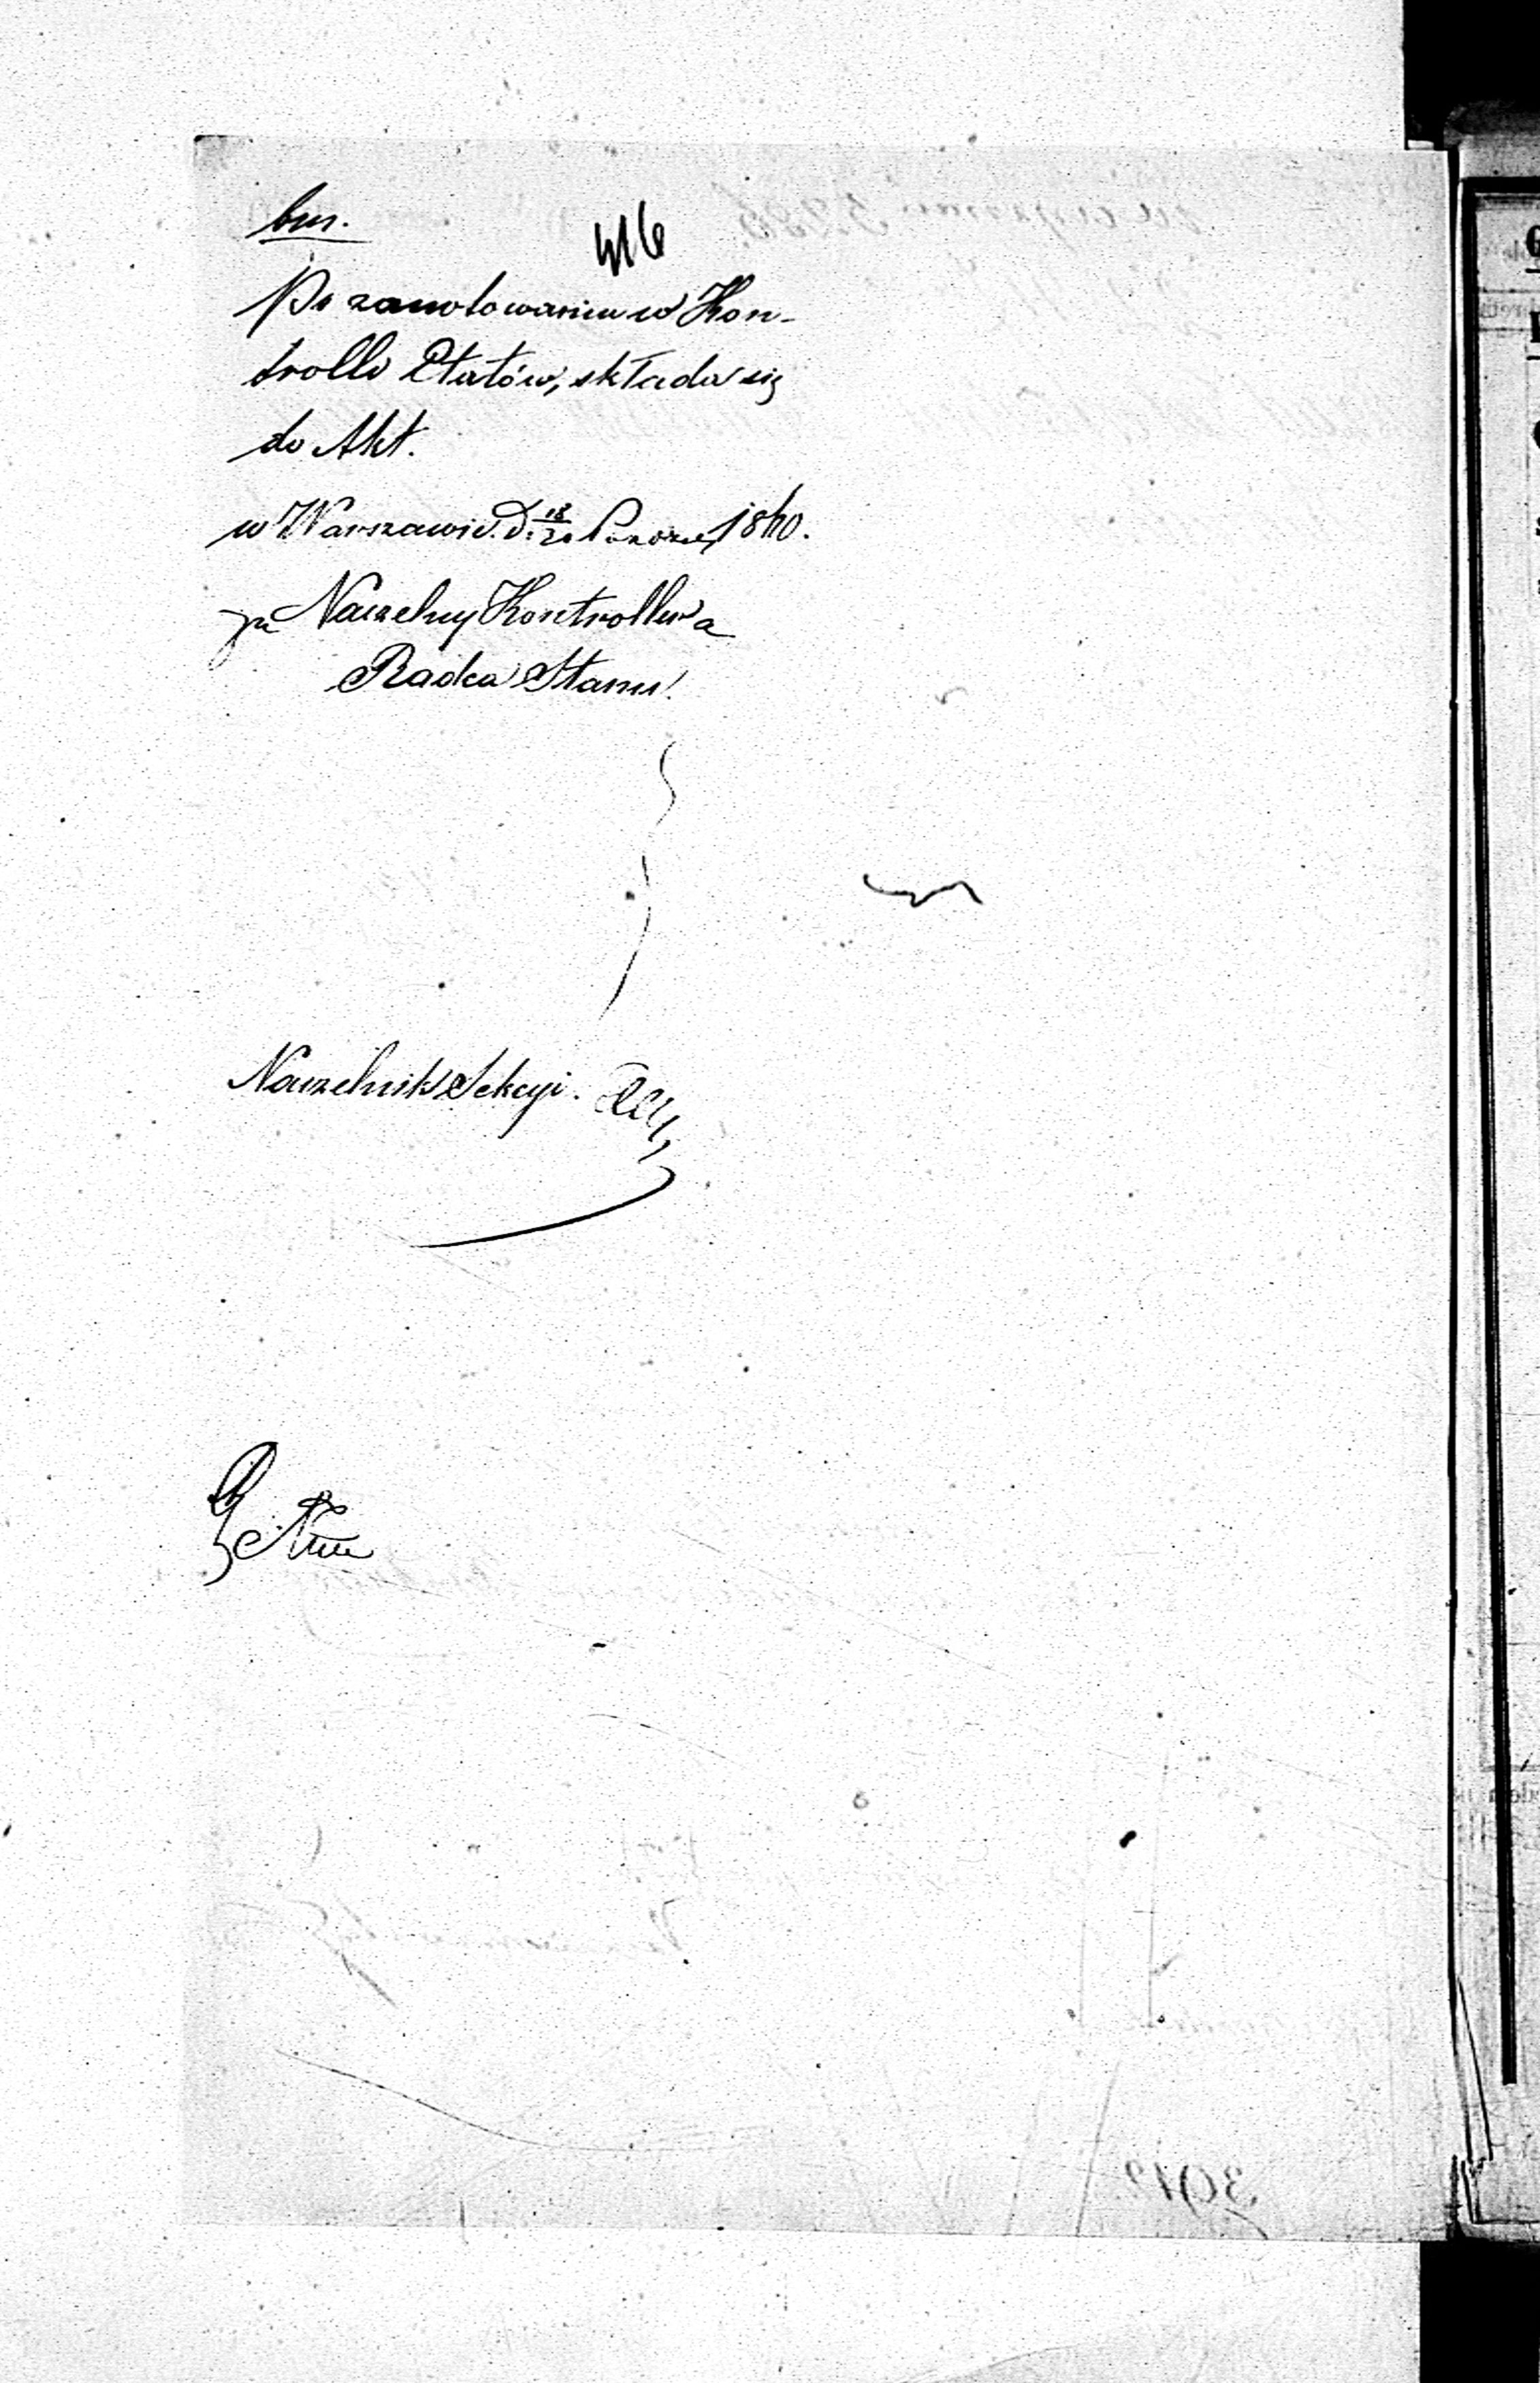 bm.
416
Po zanotowaniu w Kon-
trolli Etatów, składa się
do Akt.
w Warszawie. D. 18/30 1840.
za Naczelny Kontroller a
Radca Stanu.
Naczelnik Sekcyi.